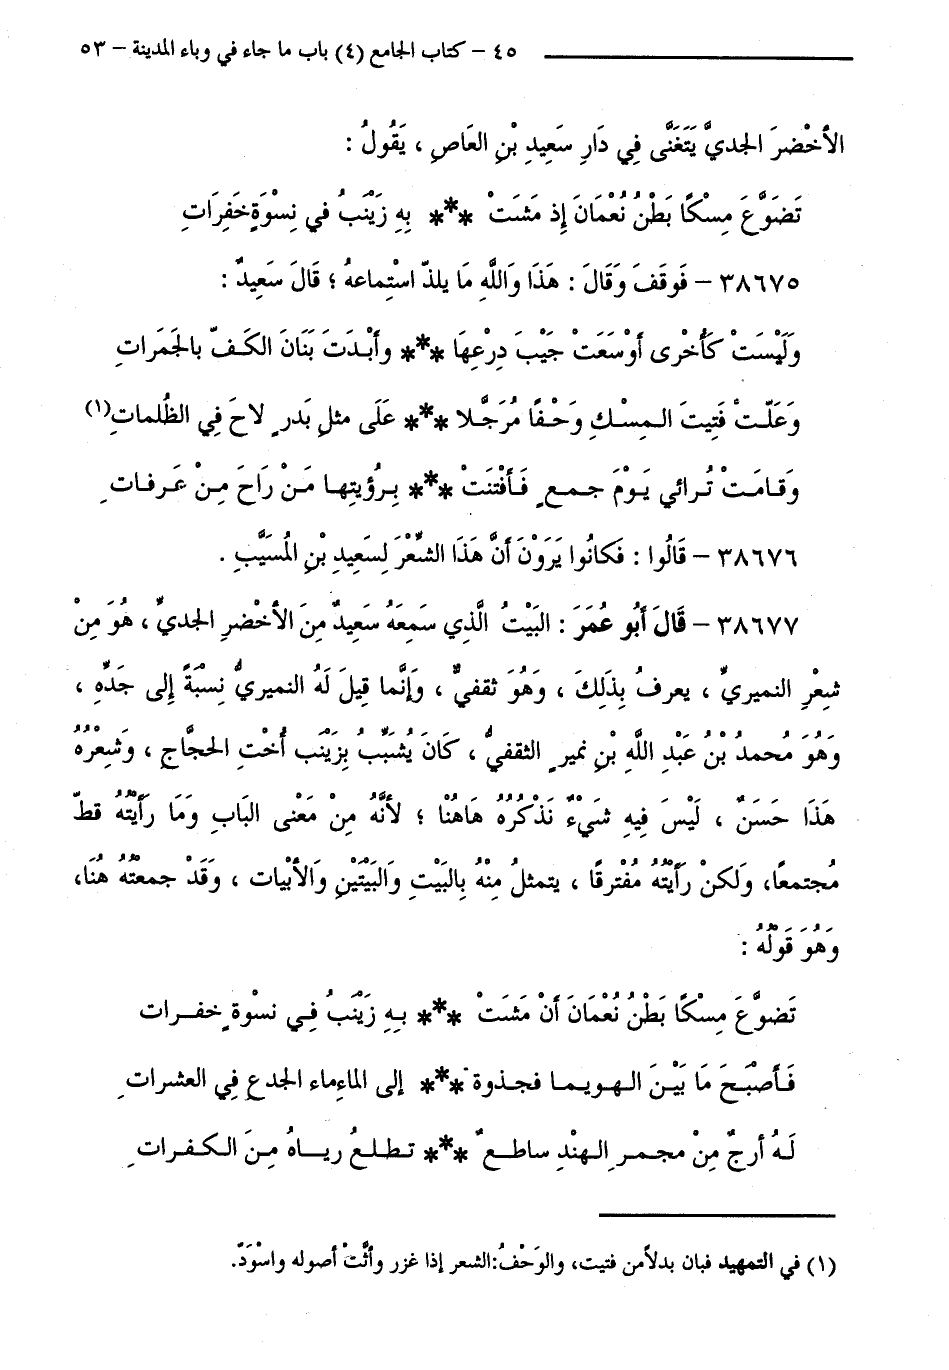 ٤٥ – كتاب الجامع (٤) باب ما جاء في وباء المدينة – ٥٣
الأخْضرَ الجديَّ يَتَغَنَّى فِي دَارِ سَعِيدِ بْنِ العَاصِ ، يَقُولُ :
تَضَوَّعَ مِسْكًا بَطْنُ نُعْمَانَ إِذ مَشَتْ *** بِهِ زَيْنَبُ في نِسْوَةٍ خَفِرَاتِ
٣٨٦٧٥ – فَوقَفَ وَقَالَ : هَذَا وَاللَّهِ مَا يلذّ استْماعهُ ؛ قالَ سَعِيدٌ :
وَلَيْسَتْ كَأُخْرى أوْسَعَتْ جَيْبَ دِرْعِهَا *** وأبْدَتْ بَنَانَ الكَفّ بالجَمَراتِ
وَعَلّتْ فَتِيتَ المِسْكِ وَحْفًا مُرَجَّلا *** عَلَى مثلِ بَدرٍ لاحَ فِي الظُلماتِ(١)
وَقامَتْ تُرائي يَوْمَ جمعٍ فَأفْتَنَتْ *** بِرُؤيتِها مَنْ رَاحَ مِنْ عَرفاتِ
٣٨٦٧٦ – قَالُوا : فَكانُوا يَرَوْنَ أنَّ هَذَا الشِّعْرَ لِسَعِيدِ بْنِ المُسَيَّبِ .
٣٨٦٧٧ – قَالَ أبُو عُمَرَ : البَيْتُ الَّذِي سَمِعَهُ سَعِيدٌ مِنَ الأخْضرِ الجديِّ ، هُوَ مِنْ
شِعْرِ النميريِّ ، يعرفُ بِذَلِكَ ، وَهُوَ ثقفيٌّ ، وَإنَّما قِيلَ لَهُ النميريُّ نِسْبَةً إلى جَدِّهِ ،
وَهُوَ محمدُ بْنُ عَبْدِ اللَّهِ بْنِ نميرٍ الثقفيُّ ، كَانَ يُشبّبُ بِزَيْنَب أخْتِ الحجَّاجِ ، وَشِعْرُهُ
هَذَا حَسَنٌ ، لَيْسَ فِيهِ شَيْءٌ نَذْكُرُهُ هَاهُنْا ؛ لأنَّهُ مِنْ مَعْنى البَابِ وَمَا رَأيْتُهُ قطّ
مُجتمعاً، وَلكنْ رَأيْتُهُ مُفْترقًا ، يتمثلُ مِنْهُ بِالبَيْتِ وَالبَيْتَيْنِ وَالأبْيات ، وَقَدْ جمعتْهُ هُنَا،
وَهُوَ قَوْلُهُ :
تَضوَّعَ مِسْكًا بَطْنُ نُعْمَانَ أنْ مَشَتْ *** بِهِ زَيْنَبُ فِي نسوْةٍ خفرات
فَأصْبَحَ مَا بَيْنَ الهويما فجذوة *** إلى الماءماء الجدع فِي العشرات
لَهُ أرجٌ مِنْ مجمرِ الهنْدِ ساطعٌ *** تطلعُ رياهُ مِنَ الكفراتِ
(١) في التمهيد فبان بدلاًمن فتيت، والوَحْفُ:الشعر إذا غزر وأثَّتْ أصوله واسْوَدّ.